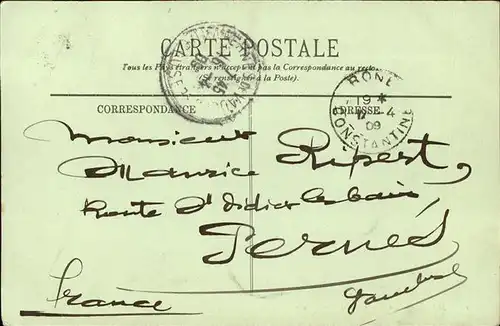 CARTE POSTALE
Tous les Pays étrangers n'acceptent pas la Correspondance au recto.
(Se renseigner à la Poste).
BONE
19 *
4
09
CONSTANTINE
CORRESPONDANCE
ADRESSE
Monsieur
Maurice Rupert,
Route St Didier les bains
Pernes
Vaucluse
France